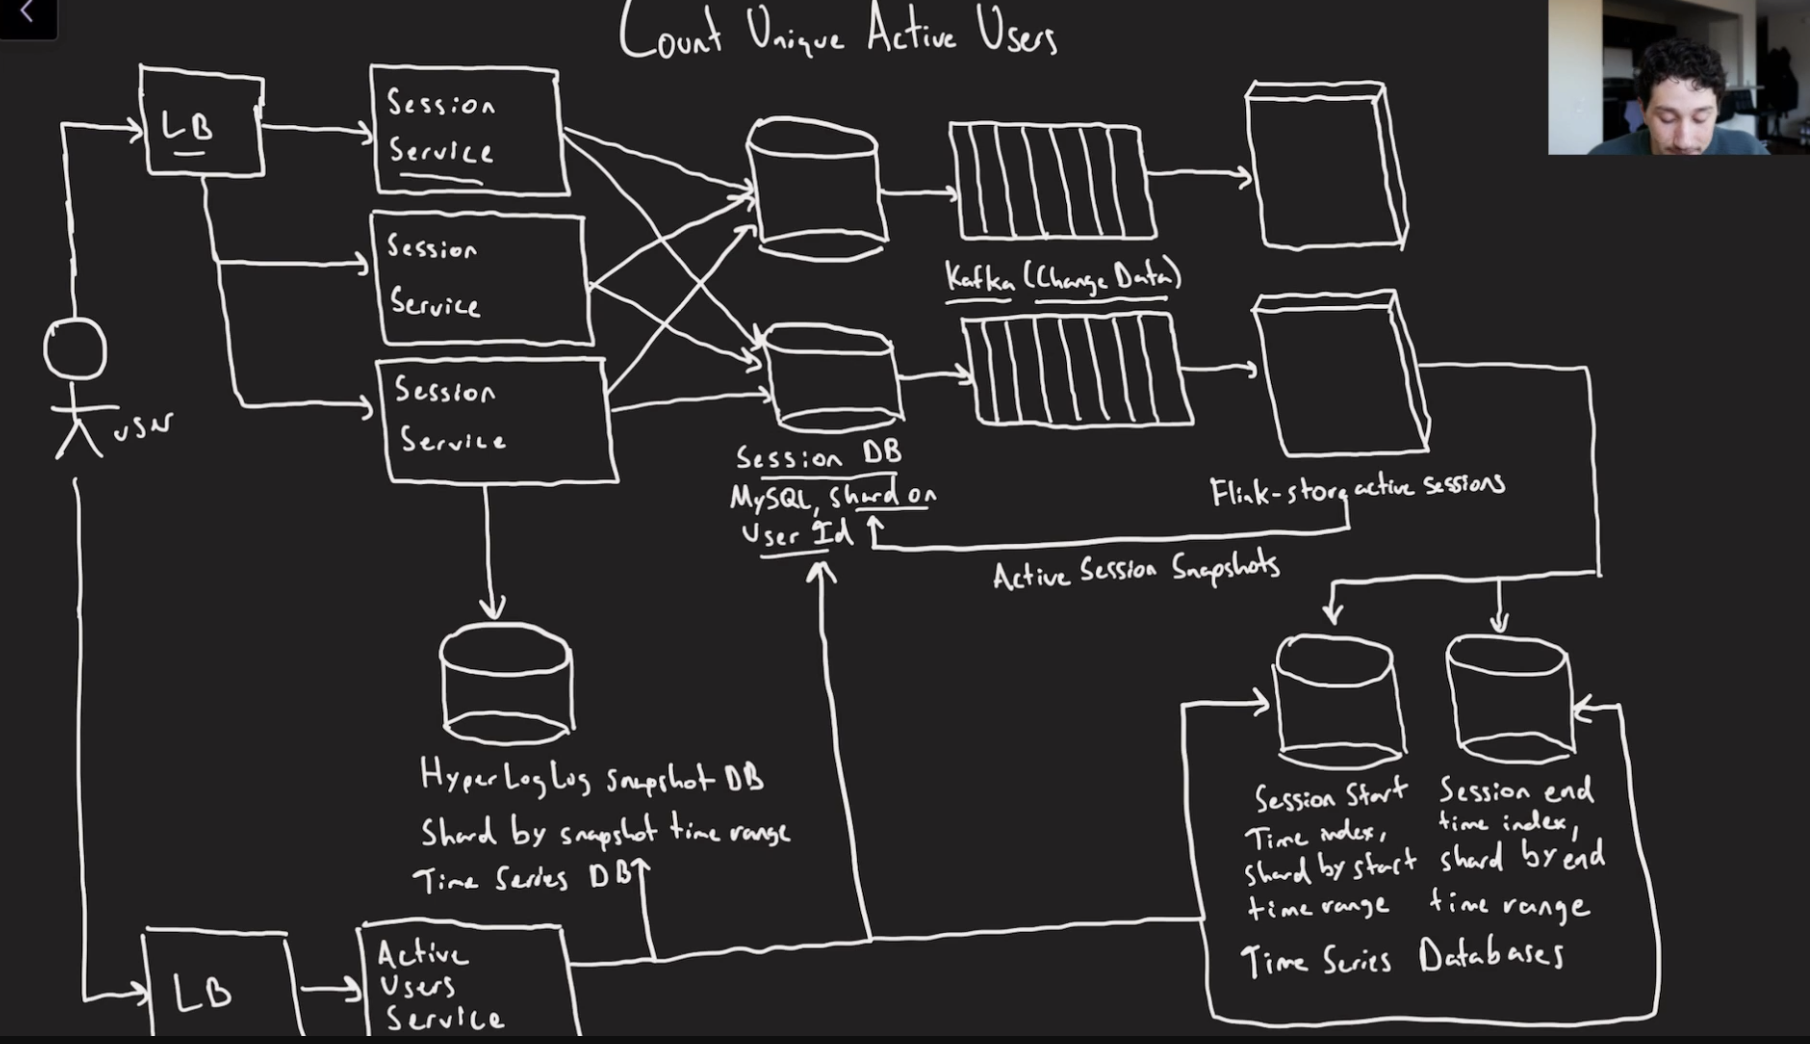 Count Unique Active Users
LB
Session
Service
Session
Service
Session
Service
Kafka (Change Data)
user
Session DB
MySQL, Shard on
User Id
Flink-store active sessions
Active Session Snapshots
HyperLogLog snapshot DB
Shard by snapshot time range
Time Series DB
Session Start
Time index,
shard by start
time range
Session end
time index,
shard by end
time range
Time Series Databases
LB
Active
Users
Service